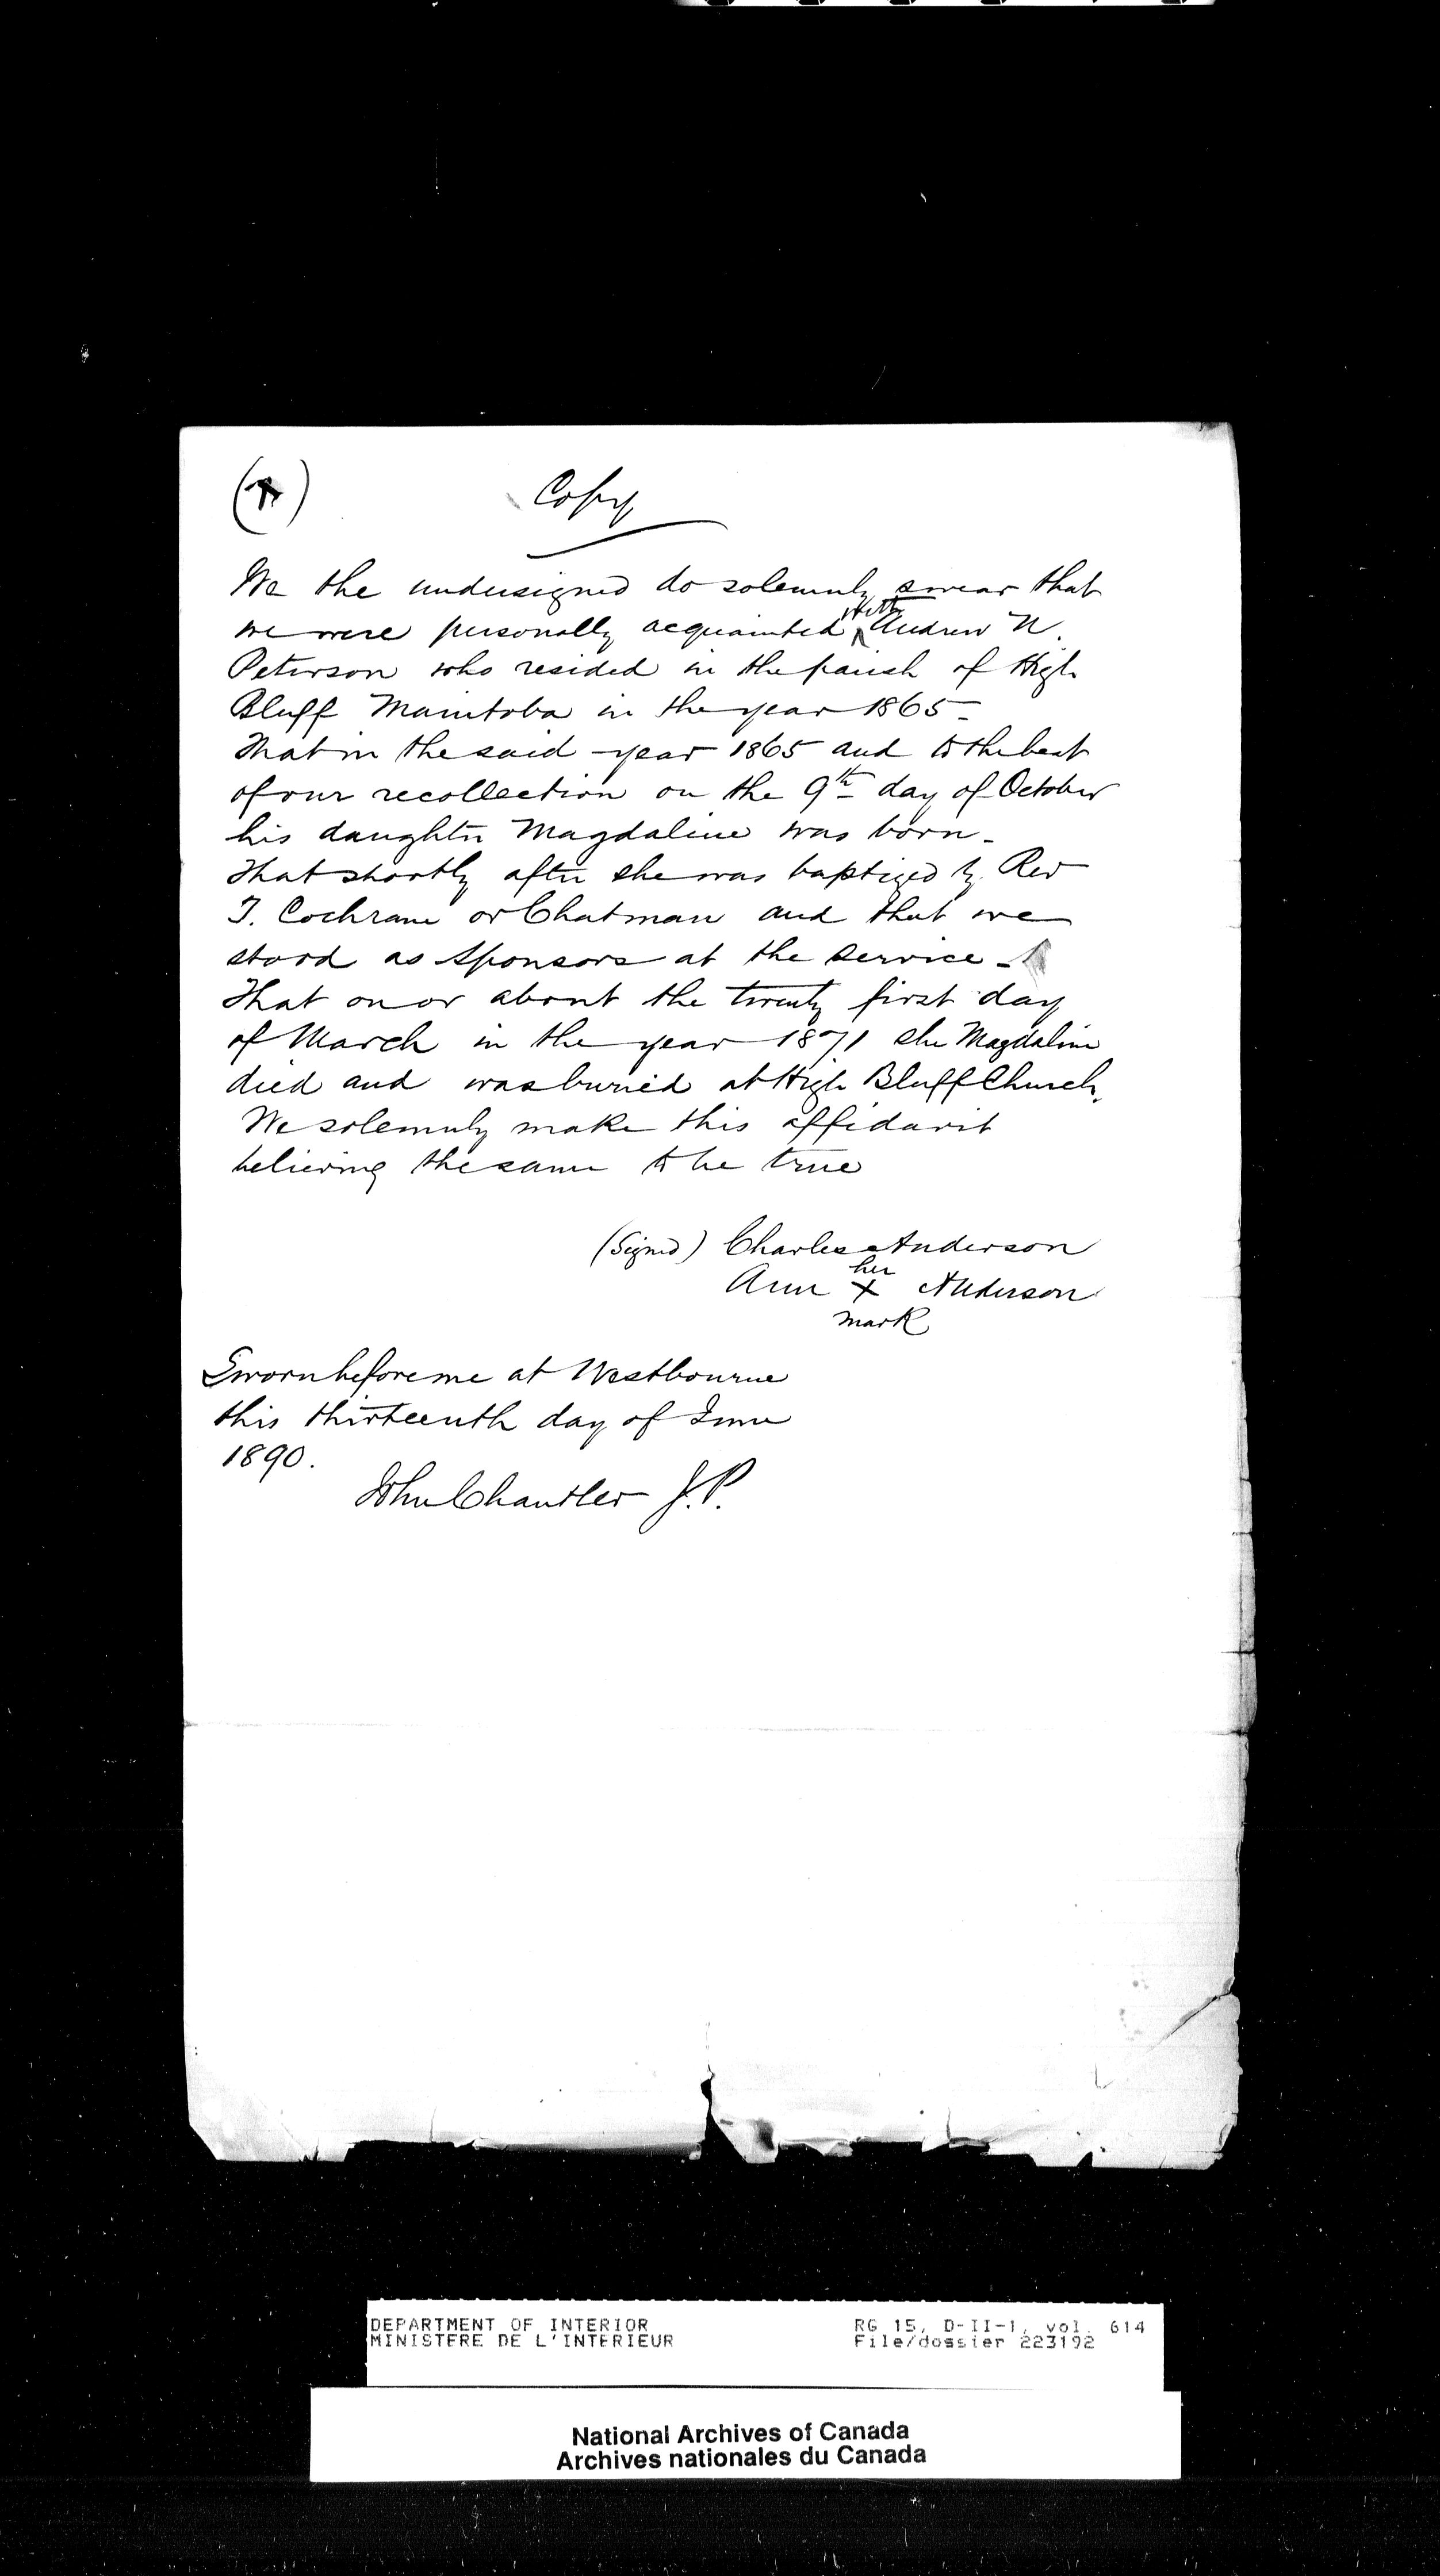 Copy
We the undersigned do solemnly swear that
we were personally acquainted with Andrew N.
Peterson who resided in the parish of High
Bluff Manitoba in the year 1865 -
That in the said year 1865 and to the best
of our recollection on the 9th day of October
his daughter Magdaline was born -
That shortly after she was baptized by Rev
T. Cochrane or Chatman and that we
stood as sponsors at the service -
That on or about the twenty first day
of March in the year 1871 she Magdaline
died and was buried at High Bluff Church.
We solemnly make this affidavit
believing the same to be true
(Signed) Charles Anderson
her
Ann X Anderson
mark
Sworn before me at Westbourne
this thirteenth day of June
1890.
John Chantler J.P.
DEPARTMENT OF INTERIOR RG 15, D-II-1, vol. 614
MINISTERE DE L'INTERIEUR File/dossier 223192
National Archives of Canada
Archives nationales du Canada